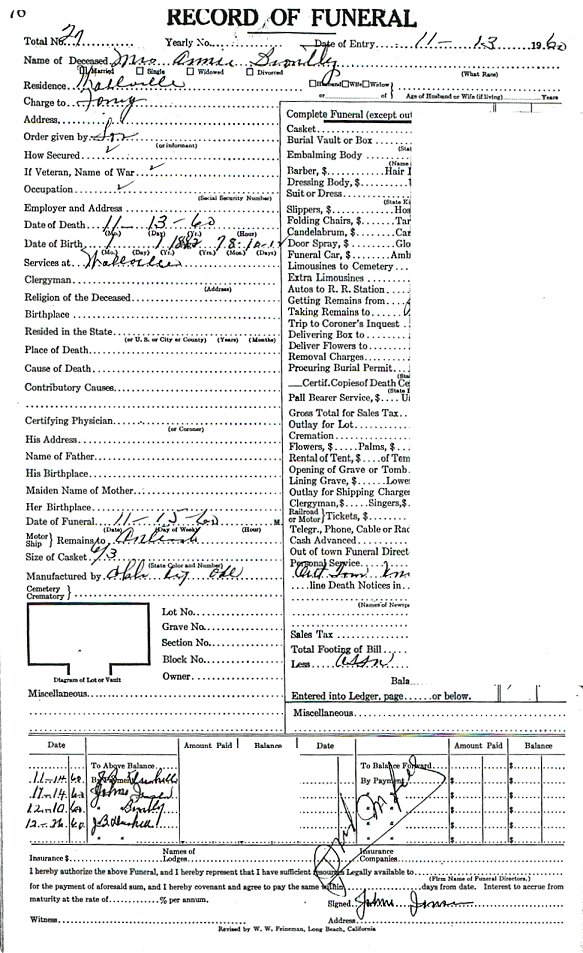 76
RECORD OF FUNERAL
Total No. 27 Yearly No. Date of Entry 11-13 1960
Name of Deceased Mrs Annie
Married Single Widowed Divorced (What Rate)
Residence Husband Wife Widow
or of Age of Husband or Wife (if living) Years
Charge to
Address
Order given by Son
(or informant)
How Secured ✓
If Veteran, Name of War ✓
Occupation ✓
(Social Security Number)
Employer and Address
Date of Death 11-13-60
(Mo.) (Day) (Yr.) (Hour)
Date of Birth 1882 78-10-
(Mo.) (Day) (Yr.) (Yrs.) (Mon.) (Days)
Services at
Clergyman
(Address)
Religion of the Deceased
Birthplace
Resided in the State
(or U. S. or City or County) (Years) (Months)
Place of Death
Cause of Death
Contributory Causes
Certifying Physician
(or Coroner)
His Address
Name of Father
His Birthplace
Maiden Name of Mother
Her Birthplace
Date of Funeral 11-15-60 M
(Date) (Day of Week) (Hour)
Motor Ship } Remains to
Size of Casket 6/3
(State Color and Number)
Manufactured by
Cemetery Crematory }
Lot No.
Grave No.
Section No.
Block No.
Owner
Diagram of Lot or Vault
Miscellaneous
Complete Funeral (except out
Casket
Burial Vault or Box
(Stat
Embalming Body
(Name
Barber, $ Hair
Dressing Body, $
Suit or Dress
(State K
Slippers, $ Hos
Folding Chairs, $ Tar
Candelabrum, $ Car
Door Spray, $ Glo
Funeral Car, $ Amb
Limousines to Cemetery
Extra Limousines
Autos to R. R. Station
Getting Remains from
Taking Remains to
Trip to Coroner's Inquest
Delivering Box to
Deliver Flowers to
Removal Charges
Procuring Burial Permit
(Sta
Certif. Copies of Death Ce
(State F
Pall Bearer Service, $
Gross Total for Sales Tax
Outlay for Lot
Cremation
Flowers, $ Palms, $
Rental of Tent, $ of Tem
Opening of Grave or Tomb
Lining Grave, $ Lowe
Outlay for Shipping Charge
Clergyman, $ Singers, $
Railroad or Motor } Tickets, $
Telegr., Phone, Cable or Rad
Cash Advanced
Out of town Funeral Direct
Personal Service
Out Town
line Death Notices in
(Names of Newsp
Sales Tax
Total Footing of Bill
Less Assn
Bala
Entered into Ledger, page or below.
Miscellaneous
Date Amount Paid Balance Date Amount Paid Balance
To Above Balance To Balance Forward
11-14-60 By Payment By Payment $ $
11-14-60 " " $ $
12-10-60 " " $ $
12-26-60 " " $ $
Insurance $ Names of Lodges Insurance Companies
I hereby authorize the above Funeral, and I hereby represent that I have sufficient resources legally available to
(Firm Name of Funeral Directors.)
for the payment of aforesaid sum, and I hereby covenant and agree to pay the same within days from date. Interest to accrue from
maturity at the rate of % per annum. Signed
Witness Address
Revised by W. W. Feineman, Long Beach, California